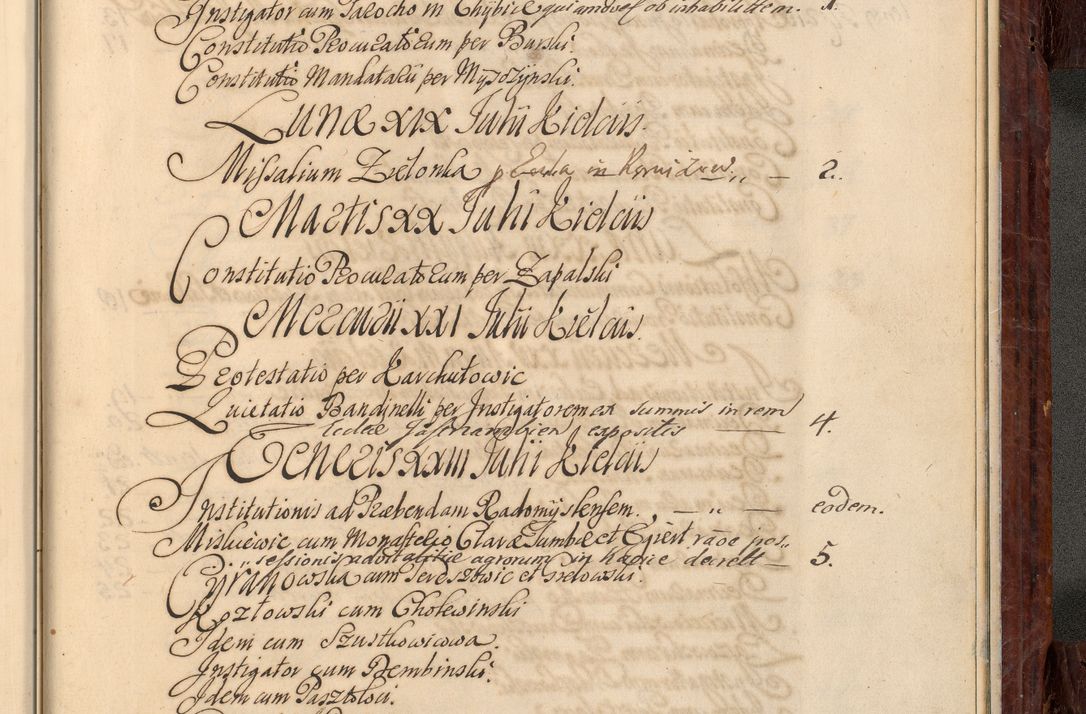 Instigator cum Parocho in Chybice qui andvers ob inhabilitdem. 1.
Constitutio Procuratorum per Burski.
Constitutio Mandatarii per Myszzynski.
Lunæ XIX Julii Kielciis.
Missalium Zielonka p in 2.
Martis XX Julii Kielciis
Constitutio Procuratorum per Zapalski
Mercurii XXI Julii Kielciis.
Protestatio per Karchutowic
Quietatio Bandinelli per Instigatorem ex summis in rem
expositis — 4.
Veneris XXIII Julii Kielciis
Institutionis ad Præbendam Radomyslensem. — „ — eodem.
Misiuewic cum Monasterio Claræ Tumbæ et Epist raõe pos„
„sessionis agrorum in — 5.
Granowska cum et
Kozłowski cum Cholewinski
Idem cum Szustkowicowa.
Instigator cum Dembinski.
Idem cum Pasztoloci.